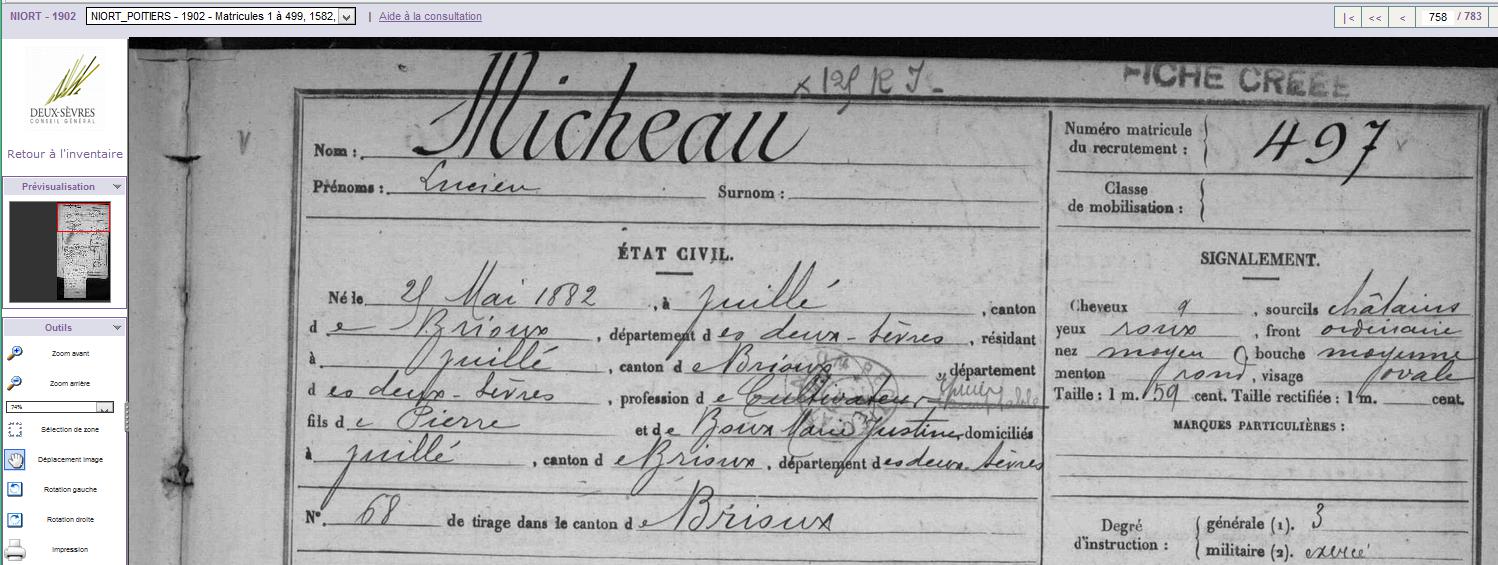 NIORT - 1902
NIORT_POITIERS - 1902 - Matricules 1 à 499, 1582,
| Aide à la consultation
|< << < 758 / 783
DEUX-SÈVRES
CONSEIL GÉNÉRAL
Retour à l'inventaire
Prévisualisation
Outils
Zoom avant
Zoom arrière
74%
Sélection de zone
Déplacement image
Rotation gauche
Rotation droite
Impression
x 125 R I.
FICHE CRÉÉE
Nom : Micheau
Prénoms : Lucien Surnom :
Numéro matricule du recrutement : 497
Classe de mobilisation :
ÉTAT CIVIL.
Né le 25 Mai 1882, à Juillé, canton
de Brioux, département des deux-Sèvres, résidant
à Juillé, canton de Brioux, département
des deux-Sèvres, profession de Cultivateur
fils de Pierre et de Boux Marie Justine domiciliés
à Juillé, canton de Brioux, département des deux-Sèvres
N° 68 de tirage dans le canton de Brioux
SIGNALEMENT.
Cheveux, sourcils châtains
yeux roux, front ordinaire
nez moyen, bouche moyenne
menton rond, visage ovale
Taille : 1 m. 59 cent. Taille rectifiée : 1 m. cent.
MARQUES PARTICULIÈRES :
Degré d'instruction : générale (1). 3
militaire (2). exercé